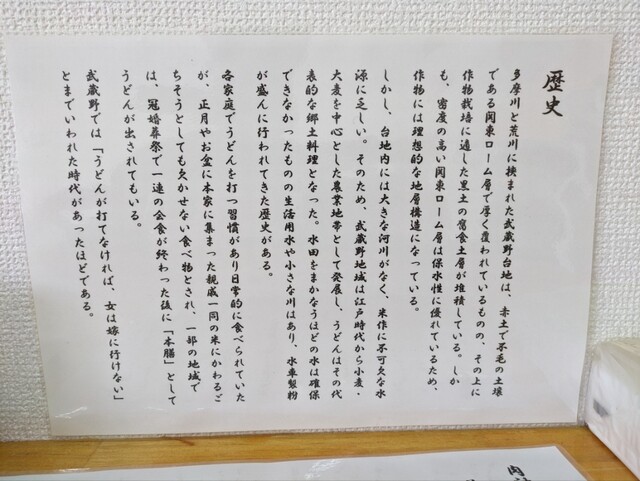 歴史
多摩川と荒川に挟まれた武蔵野台地は、赤土で不毛の土壌
である関東ローム層で厚く覆われているものの、その上に
作物栽培に適した黒土の腐食土層が堆積している。しか
も、密度の高い関東ローム層は保水性に優れているため、
作物には理想的な地層構造になっている。
しかし、台地内には大きな河川がなく、米作に不可欠な水
源に乏しい。そのため、武蔵野地域は江戸時代から小麦・
大麦を中心とした農業地帯として発展し、うどんはその代
表的な郷土料理となった。水田をまかなうほどの水は確保
できなかったものの生活用水や小さな川はあり、水車製粉
が盛んに行われてきた歴史がある。
各家庭でうどんを打つ習慣があり日常的に食べられていた
が、正月やお盆に本家に集まった親戚一同の米にかわるご
ちそうとしても欠かせない食べ物とされ、一部の地域で
は、冠婚葬祭で一連の会食が終わった後に「本膳」として
うどんが出されてもいる。
武蔵野では「うどんが打てなければ、女は嫁に行けない」
とまでいわれた時代があったほどである。